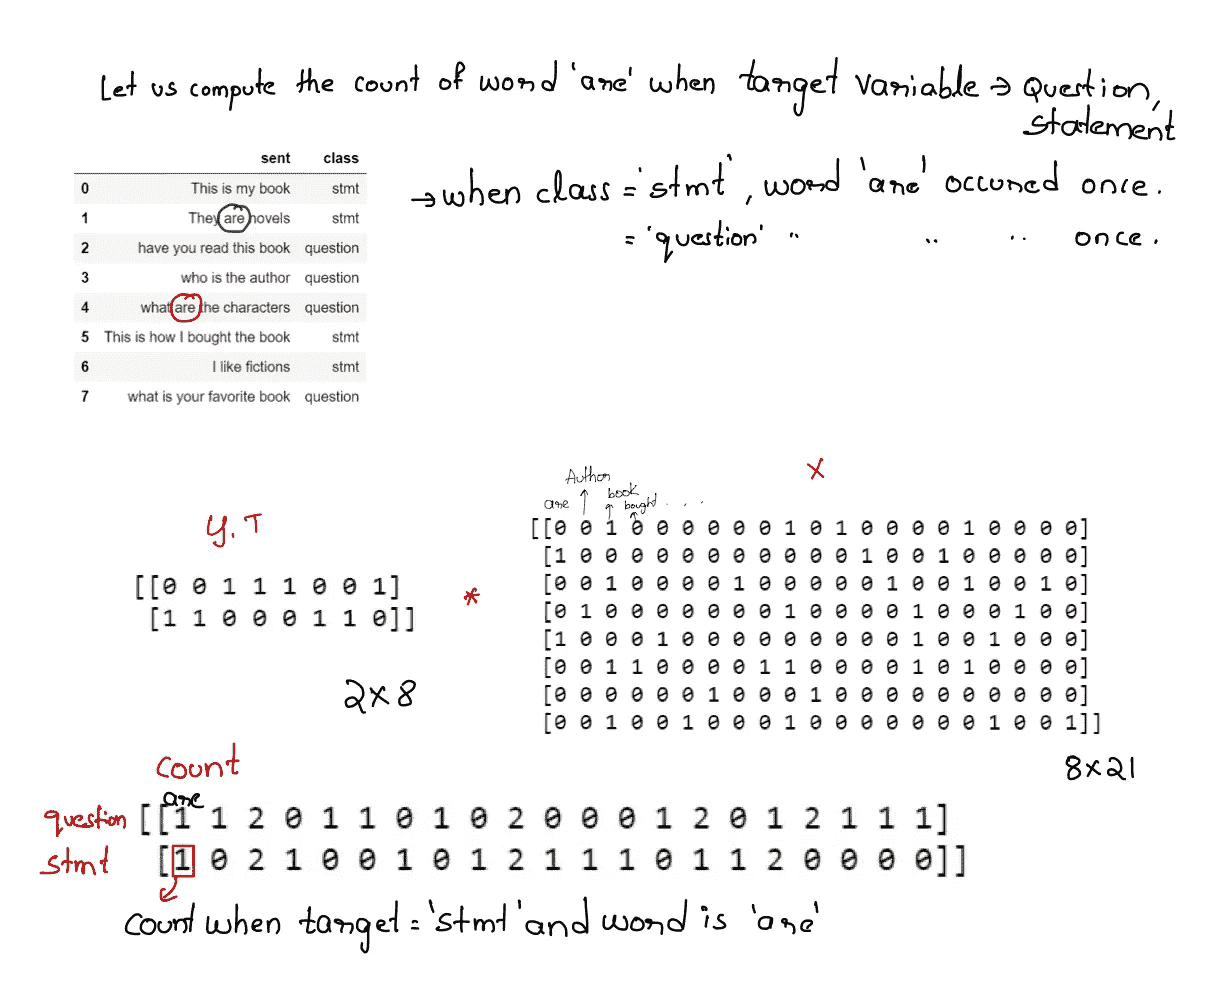 Let us compute the count of word 'are' when target variable → Question,
statement
sent class
0 This is my book stmt
1 They are novels stmt
2 have you read this book question
3 who is the author question
4 what are the characters question
5 This is how I bought the book stmt
6 I like fictions stmt
7 what is your favorite book question
→ when class = 'stmt', word 'are' occured once.
= 'question' " " " once.
y.T
[[0 0 1 1 1 0 0 1]
[1 1 0 0 0 1 1 0]]
2x8
*
X
are Author book bought . . .
[[0 0 1 0 0 0 0 0 0 1 0 1 0 0 0 0 1 0 0 0 0]
[1 0 0 0 0 0 0 0 0 0 0 0 1 0 0 1 0 0 0 0 0]
[0 0 1 0 0 0 0 1 0 0 0 0 0 1 0 0 1 0 0 1 0]
[0 1 0 0 0 0 0 0 0 1 0 0 0 0 1 0 0 0 1 0 0]
[1 0 0 0 1 0 0 0 0 0 0 0 0 0 1 0 0 1 0 0 0]
[0 0 1 1 0 0 0 0 1 1 0 0 0 0 1 0 1 0 0 0 0]
[0 0 0 0 0 0 1 0 0 0 1 0 0 0 0 0 0 0 0 0 0]
[0 0 1 0 0 1 0 0 0 1 0 0 0 0 0 0 0 1 0 0 1]]
8x21
count
are
question [[1 1 2 0 1 1 0 1 0 2 0 0 0 1 2 0 1 2 1 1 1]
stmt [1 0 2 1 0 0 1 0 1 2 1 1 1 0 1 1 2 0 0 0 0]]
count when target = 'stmt' and word is 'are'